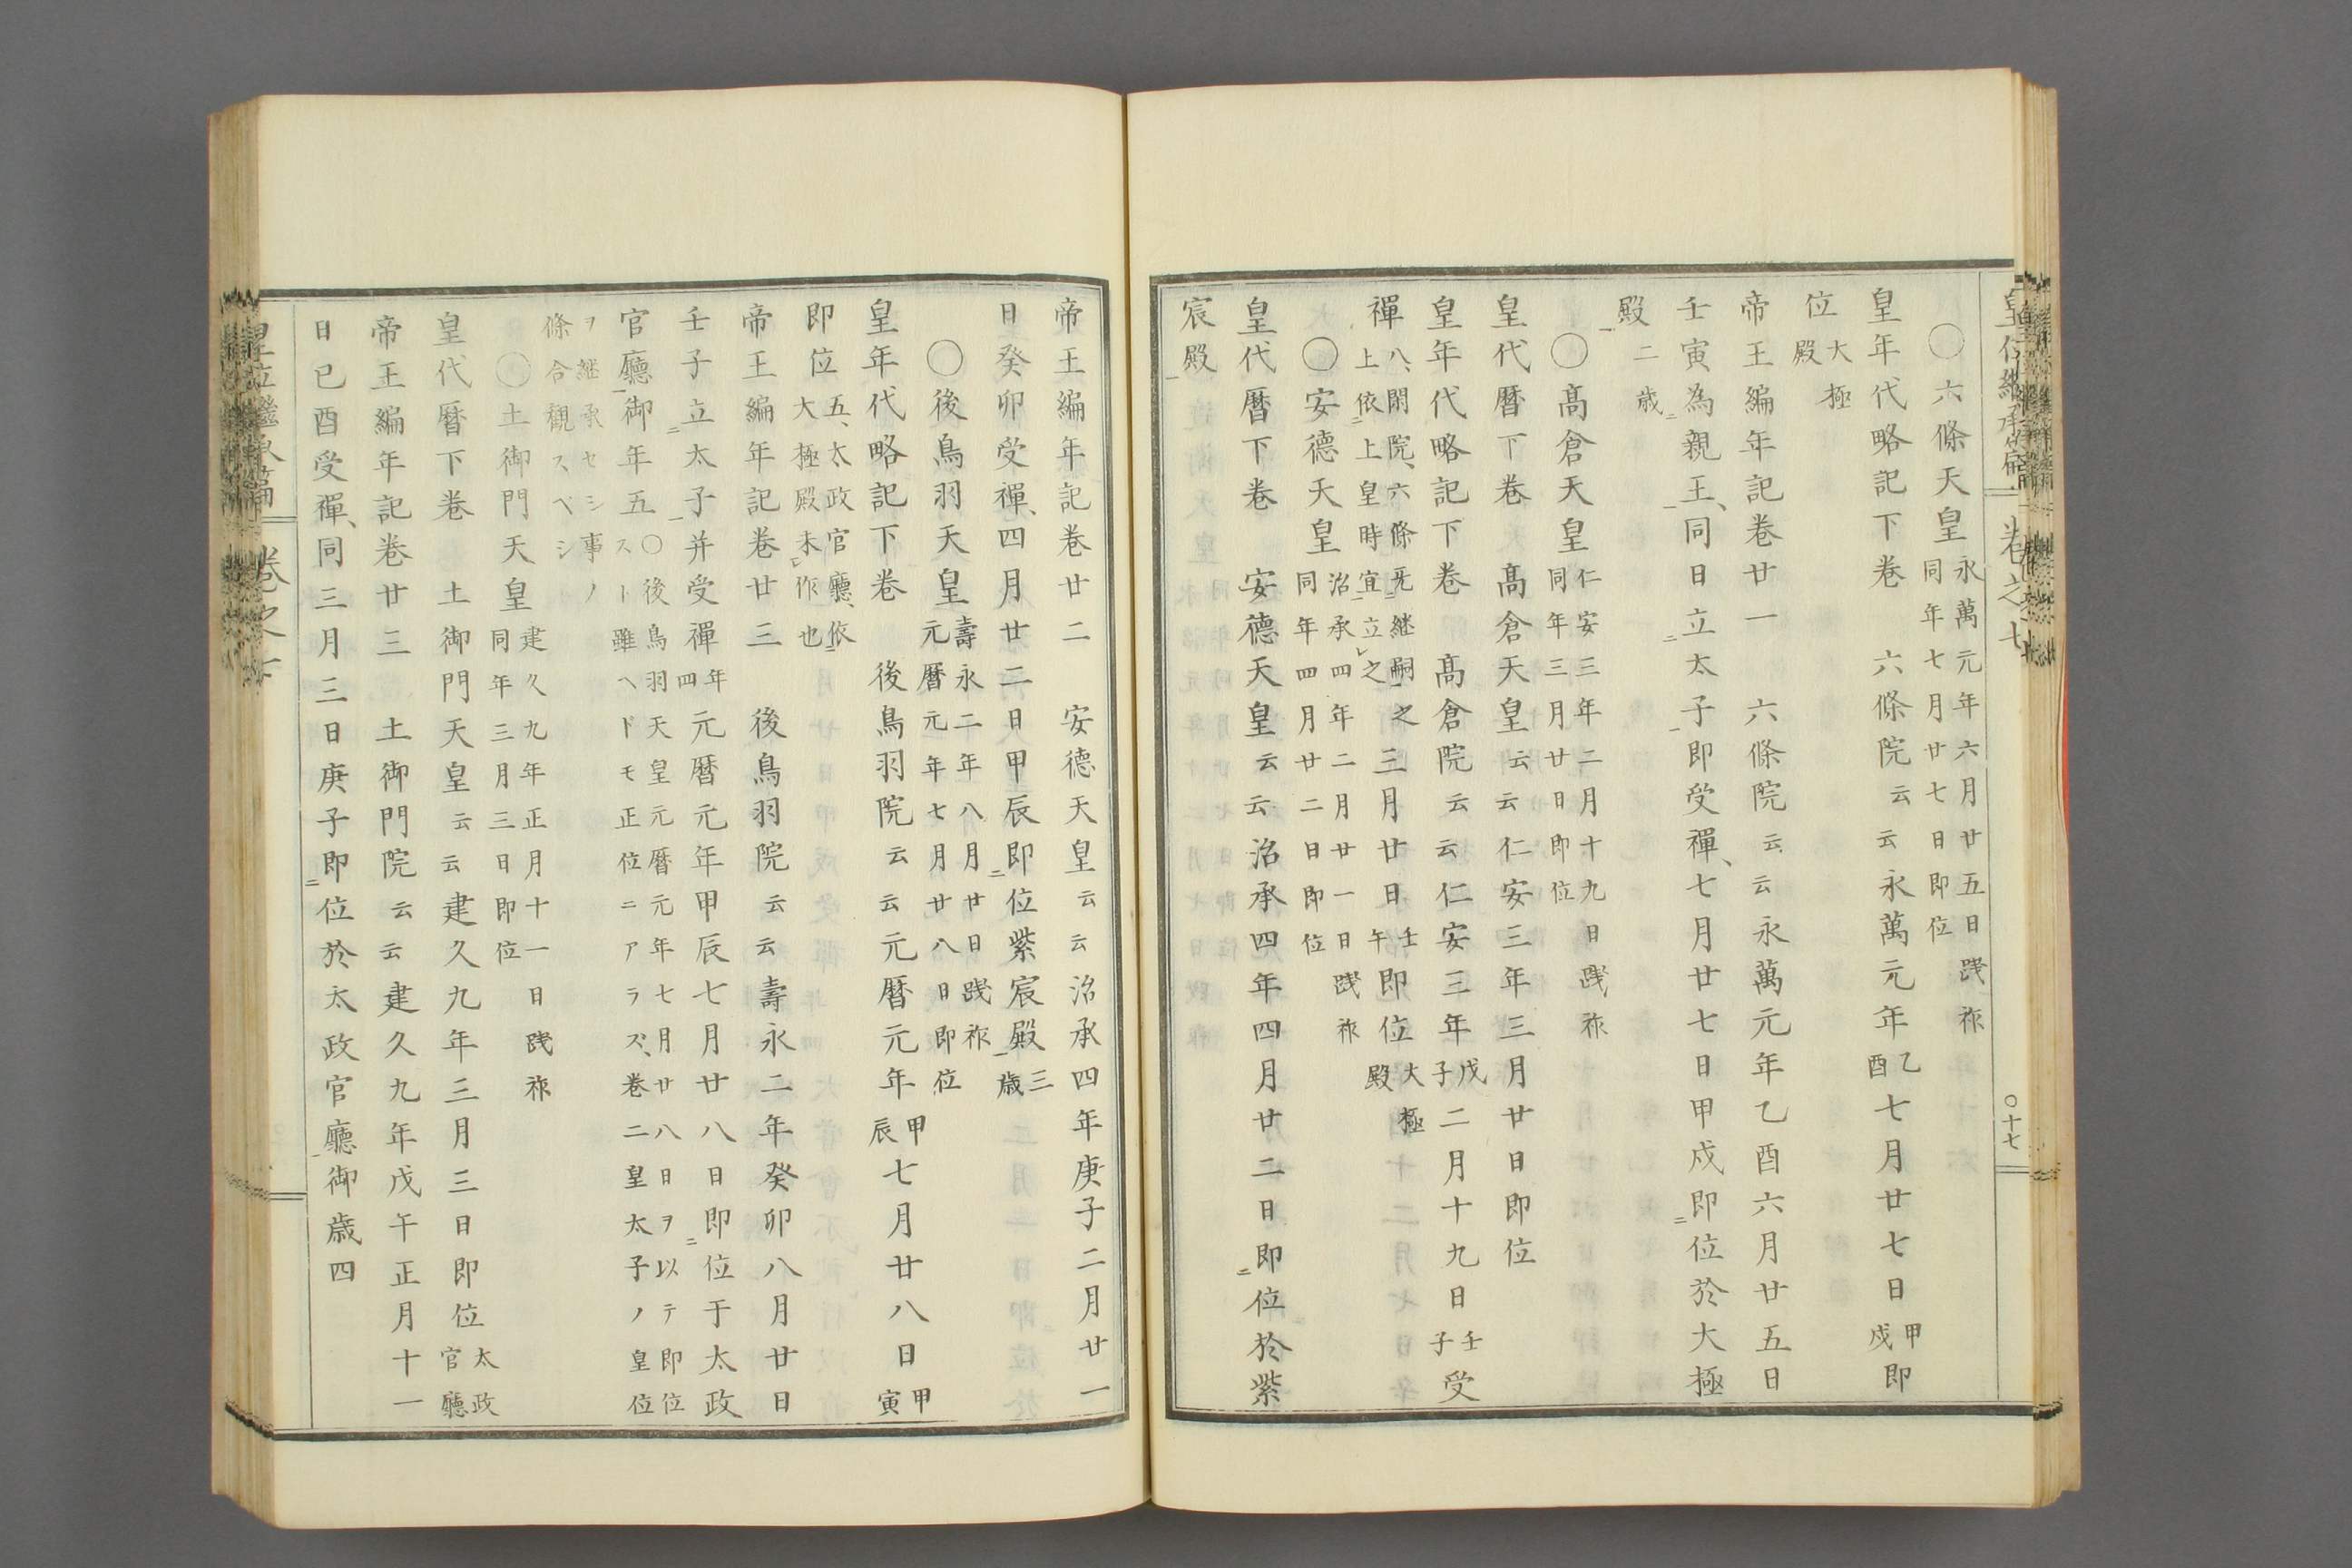 皇位繼承篇 卷之七 ○十七
○六條天皇 永萬元年六月廿五日踐祚 同年七月廿七日即位
皇年代略記下卷 六條院云云永萬元年乙酉七月廿七日甲戌即
位大極殿
帝王編年記卷廿一 六條院云云永萬元年乙酉六月廿五日
壬寅為親王、同日立太子即受禪、七月廿七日甲戌即位於大極
殿二歳
○髙倉天皇 仁安三年二月十九日踐祚 同年三月廿日即位
皇代曆下卷 髙倉天皇云云仁安三年三月廿日即位
皇年代略記下卷 髙倉院云云仁安三年戊子二月十九日壬子受
禪八、閑院、六條旡継嗣之上依上皇時宜立之 三月廿日壬午即位大極殿
○安德天皇 治承四年二月廿一日踐祚 同年四月廿二日即位
皇代曆下卷 安德天皇云云治承四年四月廿二日即位於紫
宸殿
帝王編年記卷廿二 安德天皇云云治承四年庚子二月廿一
日癸卯受禪、四月廿二日甲辰即位紫宸殿三歳
○後鳥羽天皇 壽永二年八月廿日踐祚 元曆元年七月廿八日即位
皇年代略記下卷 後鳥羽院云云元曆元年甲辰七月廿八日甲寅
即位五、太政官廳、依大極殿未作也
帝王編年記卷廿三 後鳥羽院云云壽永二年癸卯八月廿日
壬子立太子并受禪年四元曆元年甲辰七月廿八日即位于太政
官廳御年五○後鳥羽天皇元曆元年七月廿八日ヲ以テ即位スト雖ヘドモ正位ニアラズ、卷二皇太子ノ皇位
ヲ継承セシ事ノ條合觀スベシ
○土御門天皇 建久九年正月十一日踐祚 同年三月三日即位
皇代曆下卷 土御門天皇云云建久九年三月三日即位太政官廳
帝王編年記卷廿三 土御門院云云建久九年戊午正月十一
日己酉受禪、同三月三日庚子即位於太政官廳御歳四
皇位繼承篇 卷之七